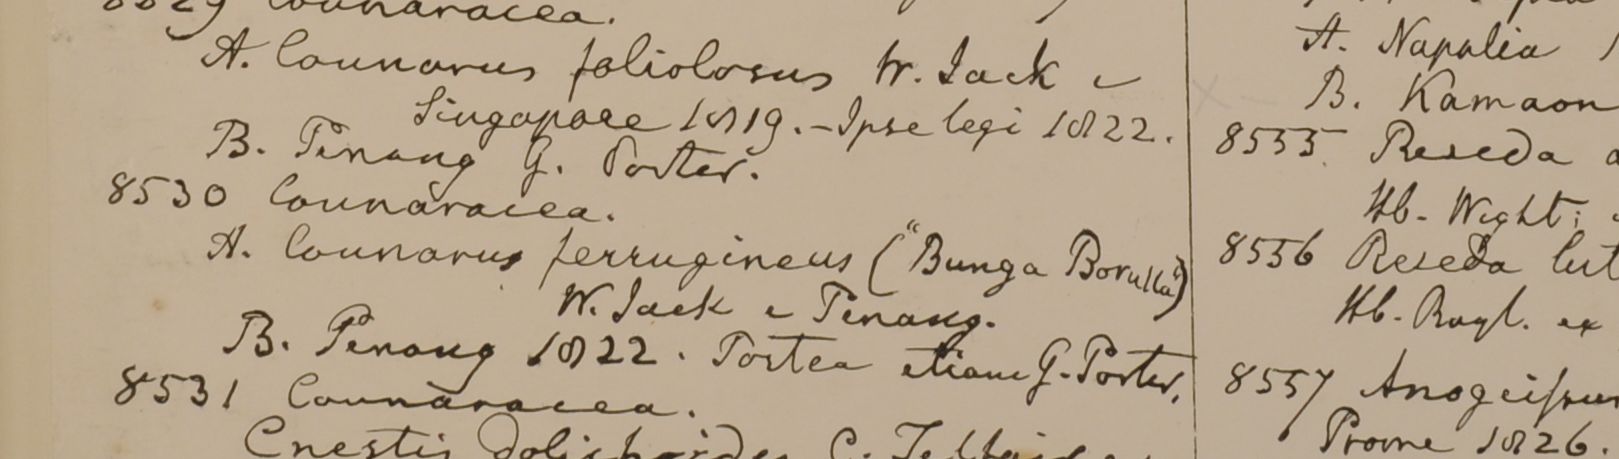 8529 Counaracea.
A. Counarus foliolosus W. Jack e
Singapore 1819. - Ipse legi 1822.
B. Penang G. Porter.
8530 Counaracea.
A. Counarus ferrugineus ("Bunga Borulla")
W. Jack e Penang.
B. Penang 1822. Postea etiam G. Porter.
8531 Counaracea.
Cnestis
A. Napalia
B. Kamaon
8555 Reseda
Hb. Wight;
8556 Reseda lut
Hb. Royl. ex
8557 Anogeissus
Prome 1826.